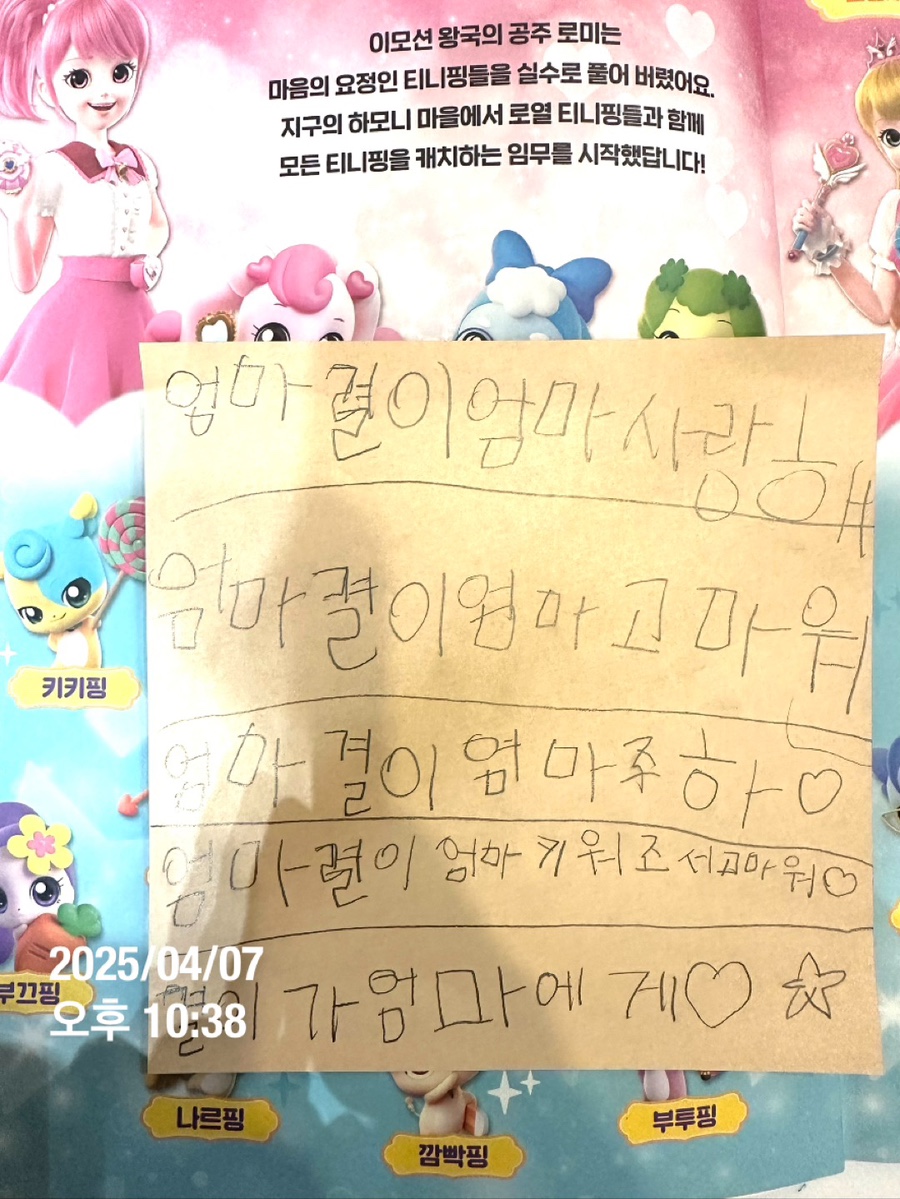 이모션 왕국의 공주 로미는
마음의 요정인 티니핑들을 실수로 풀어 버렸어요.
지구의 하모니 마을에서 로열 티니핑들과 함께
모든 티니핑을 캐치하는 임무를 시작했답니다!
엄마 결이 엄마 사랑해
엄마 결이 엄마 고마워
키키핑
엄마 결이 엄마 추하
엄마 결이 엄마 키워조서고마워
2025/04/07
부끄핑
결이가 엄마에게
오후 10:38
나르핑
부투핑
깜빡핑